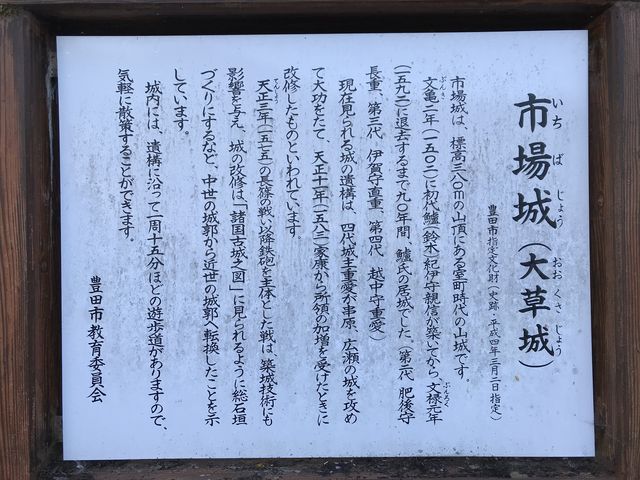 市場城（大草城）
いちばじょう
おおくさじょう
豊田市指定文化財（史跡・平成四年三月二日指定）
市場城は、標高三八〇mの山頂にある室町時代の山城です。
文亀二年（一五〇二）に初代鱸（鈴木）紀伊守親信が築いてから、文禄元年
ぶんき
ぶんろく
（一五九二）に退去するまで九〇年間、鱸氏の居城でした。（第二代 肥後守
長重、第三代 伊賀守直重、第四代 越中守重愛）
現在見られる城の遺構は、四代城主重愛が串原、広瀬の城を攻め
て大功をたて、天正十一年（一五八三）家康から所領の加増を受けたときに
改修したものといわれています
天正三年（一五七五）の長篠の戦い以降鉄砲を主体とした戦は、築城技術にも
てんしょう
影響を与え、城の改修は「諸国古城之図」に見られるように総石垣
づくりにするなど、中世の城郭から近世の城郭へ転換したことを示
しています。
城内には、遺構に沿って一周十五分ほどの遊歩道がありますので、
気軽に散策することができます。
豊田市教育委員会